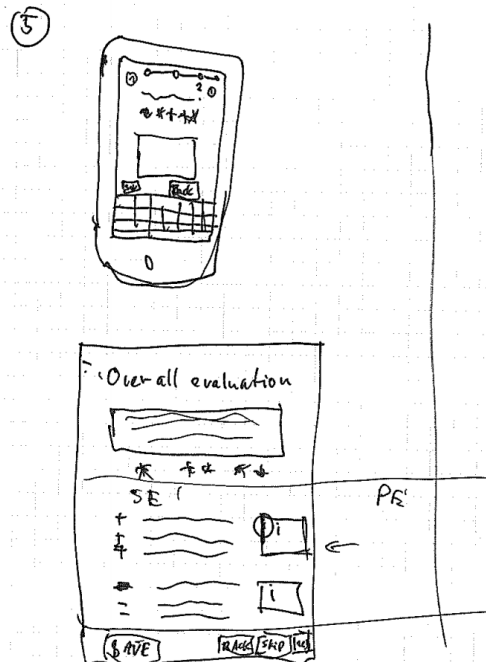 5
2
Back
Overall evaluation
SE PE
i
i
SAVE BACK SKIP